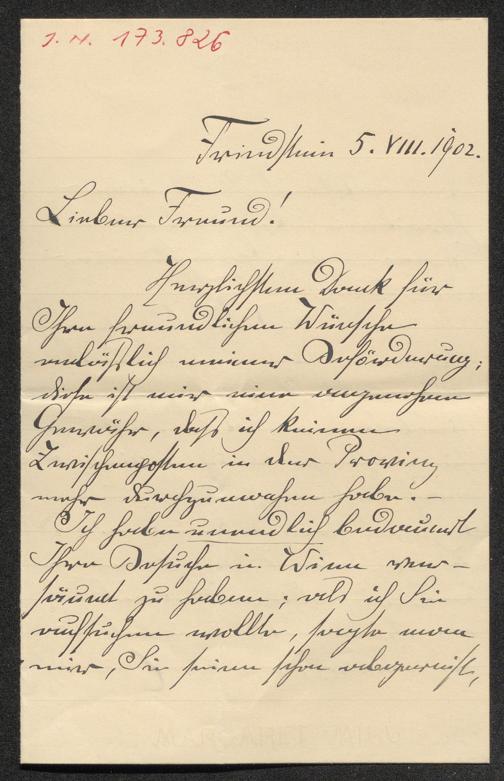 J. N. 173.826
Friedstein 5. VIII. 1902.
Lieber Freund!
Herzlichsten Dank für
Ihre freundlichen Wünsche
anlässlich meiner Beförderung;
diese ist mir eine angenehme
Gewähr, daß ich keinen
Zwischenposten in der Provinz
mehr durchzumachen habe. –
Ich habe unendlich bedauert
Ihre Besuche in Wien ver-
säumt zu haben; als ich Sie
aufsuchen wollte, sagte man
mir, Sie seien schon abgereist,